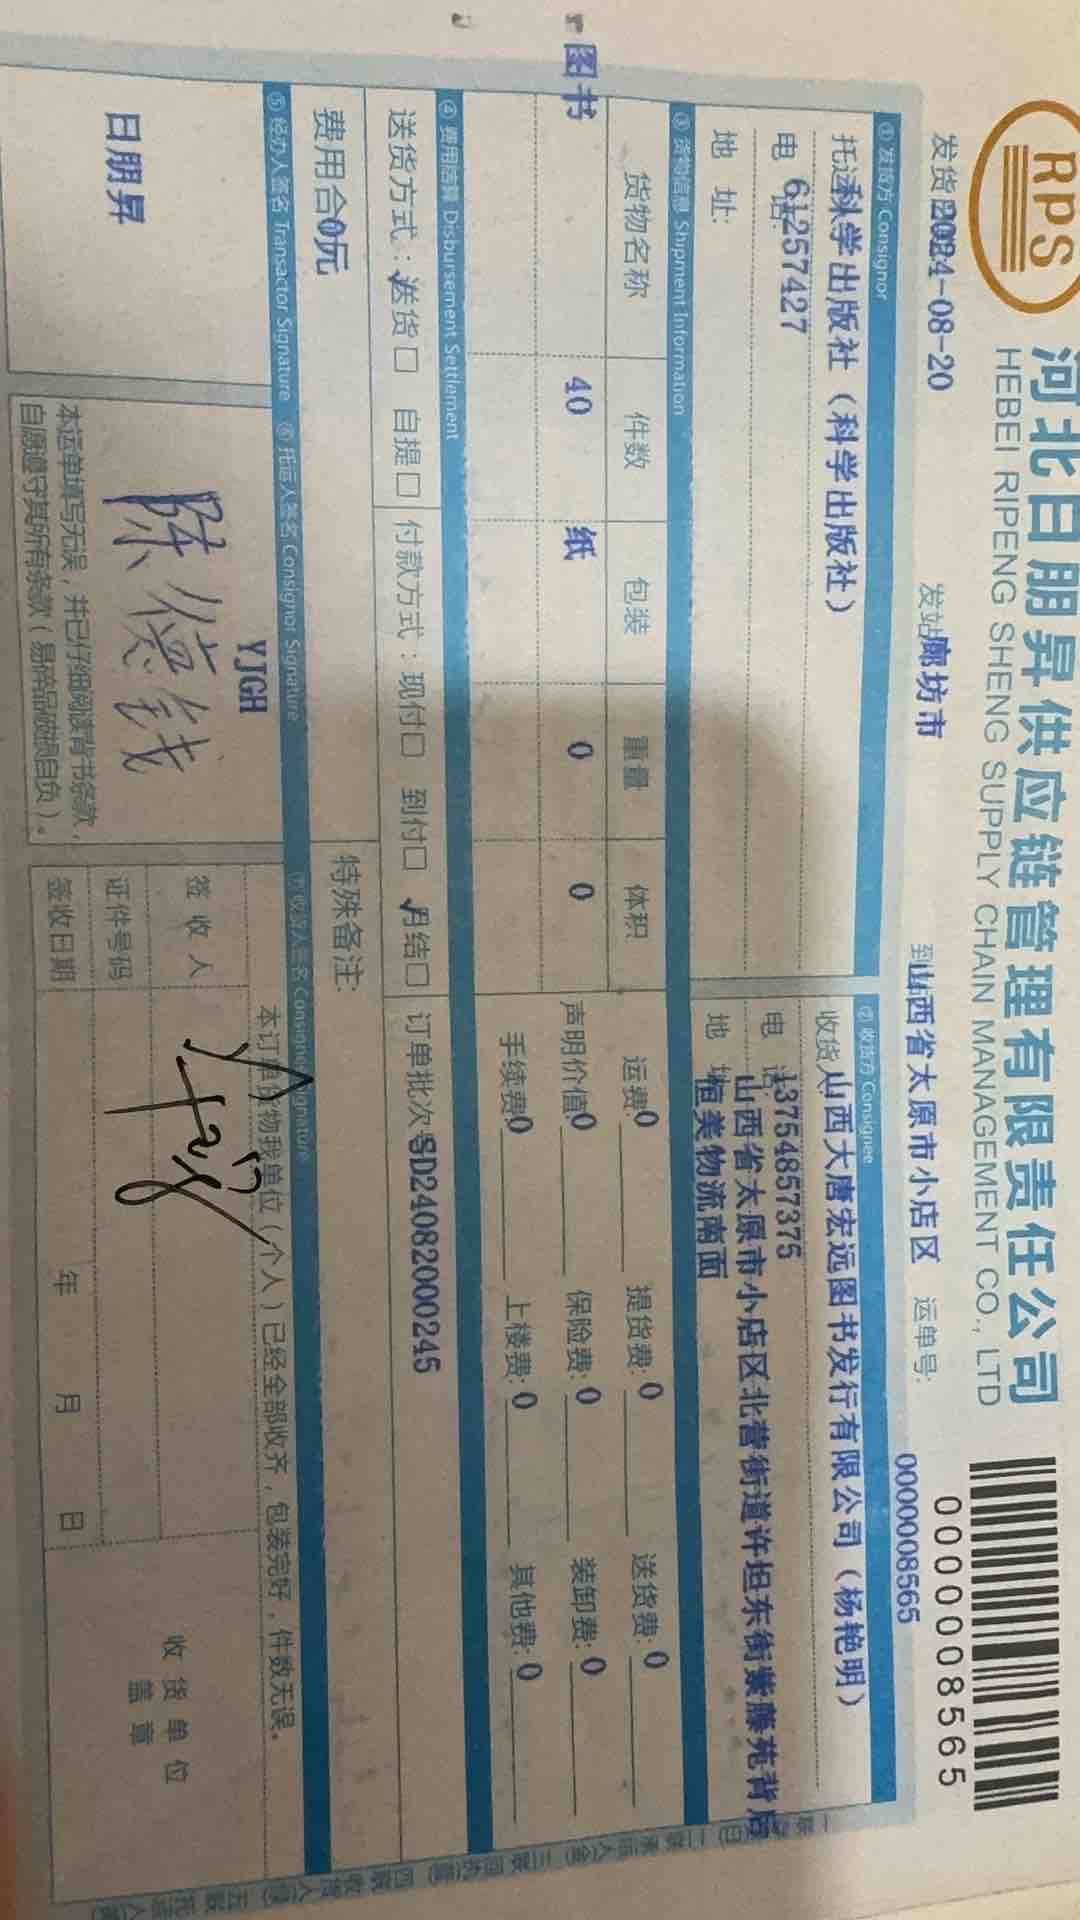 RPS
河北日朋昇供应链管理有限责任公司
HEBEI RIPENG SHENG SUPPLY CHAIN MANAGEMENT CO., LTD
0000008565
发货日期 2024-08-20 发站 廊坊市 到站 山西省太原市小店区 运单号: 0000008565
① 发货方 Consignor ② 收货方 Consignee
托运人 科学出版社（科学出版社） 收货人 山西大唐宏远图书发行有限公司（杨艳明）
电 话: 61257427 电 话 13754857375
地 址: 地 址 山西省太原市小店区北营街道许坦东街紫藤苑背后
恒美物流南面
③ 货物信息 Shipment Information
货物名称 件数 包装 重量 体积 运费 0 提货费: 0 送货费: 0
图书 40 纸 0 0 声明价值 0 保险费: 0 装卸费: 0
手续费 0 上楼费: 0 其他费: 0
④ 费用结算 Disbursement Settlement
送货方式: 送货□ 自提□ 付款方式: 现付□ 到付□ 月结□ 订单批次号 SD240820000245
费用合 0元 特殊备注:
⑤ 经办人签名 Transactor Signature ⑥ 托运人签名 Consignor Signature ⑦ 收货人签名 Consignee Signature
YJGH
日朋昇
本运单填写无误，并已仔细阅读背书条款，
自愿遵守其所有条款（易碎品破损自负）。
本订单货物我单位（个人）已经全部收齐，包装完好，件数无误。
签收人
证件号码
签收日期 年 月 日
收货单位
盖章